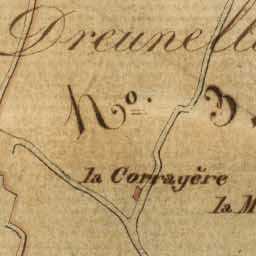 Dreunell
No.
la Corrayère
la M